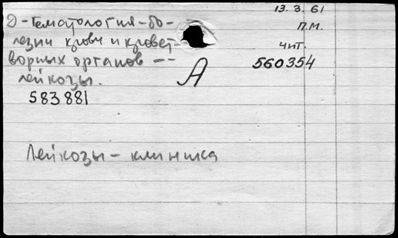 Д-Гематология-бо-
лезни крови и кровет-
ворных органов --
лейкозы.
583881
13.3.61
П.М.
чит.
560354
А
Лейкозы - клиника